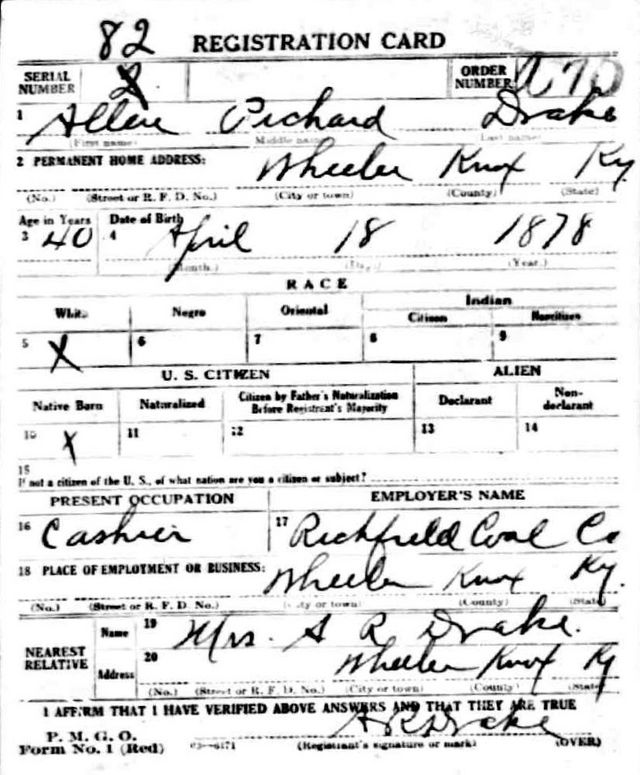 82 REGISTRATION CARD
SERIAL NUMBER 2 ORDER NUMBER
1 Allen Richard Drake
(First name) Middle name Last name
2 PERMANENT HOME ADDRESS: Wheeler Knox Ky.
(No.) (Street or R. F. D. No.) (City or town) (County) (State)
Age in Years Date of Birth
3 40 4 April 18 1878
(Month.) (Day) (Year.)
RACE
White Negro Oriental Indian
Citizen Noncitizen
5 X 6 7 8 9
U. S. CITIZEN ALIEN
Native Born Naturalized Citizen by Father's Naturalization Before Registrant's Majority Declarant Non-declarant
10 X 11 12 13 14
15
If not a citizen of the U. S., of what nation are you a citizen or subject?
PRESENT OCCUPATION EMPLOYER'S NAME
16 Cashier 17 Richfield Coal Co
18 PLACE OF EMPLOYMENT OR BUSINESS: Wheeler Knox Ky.
(No.) (Street or R. F. D. No.) (City or town) (County) (State)
NEAREST RELATIVE Name 19 Mrs. A R Drake.
Address 20 Wheeler Knox Ky
(No.) (Street or R. F. D. No.) (City or town) (County) (State)
I AFFIRM THAT I HAVE VERIFIED ABOVE ANSWERS AND THAT THEY ARE TRUE
P. M. G. O. A R Drake
Form No. 1 (Red) 03-6171 (Registrant's signature or mark) (OVER)